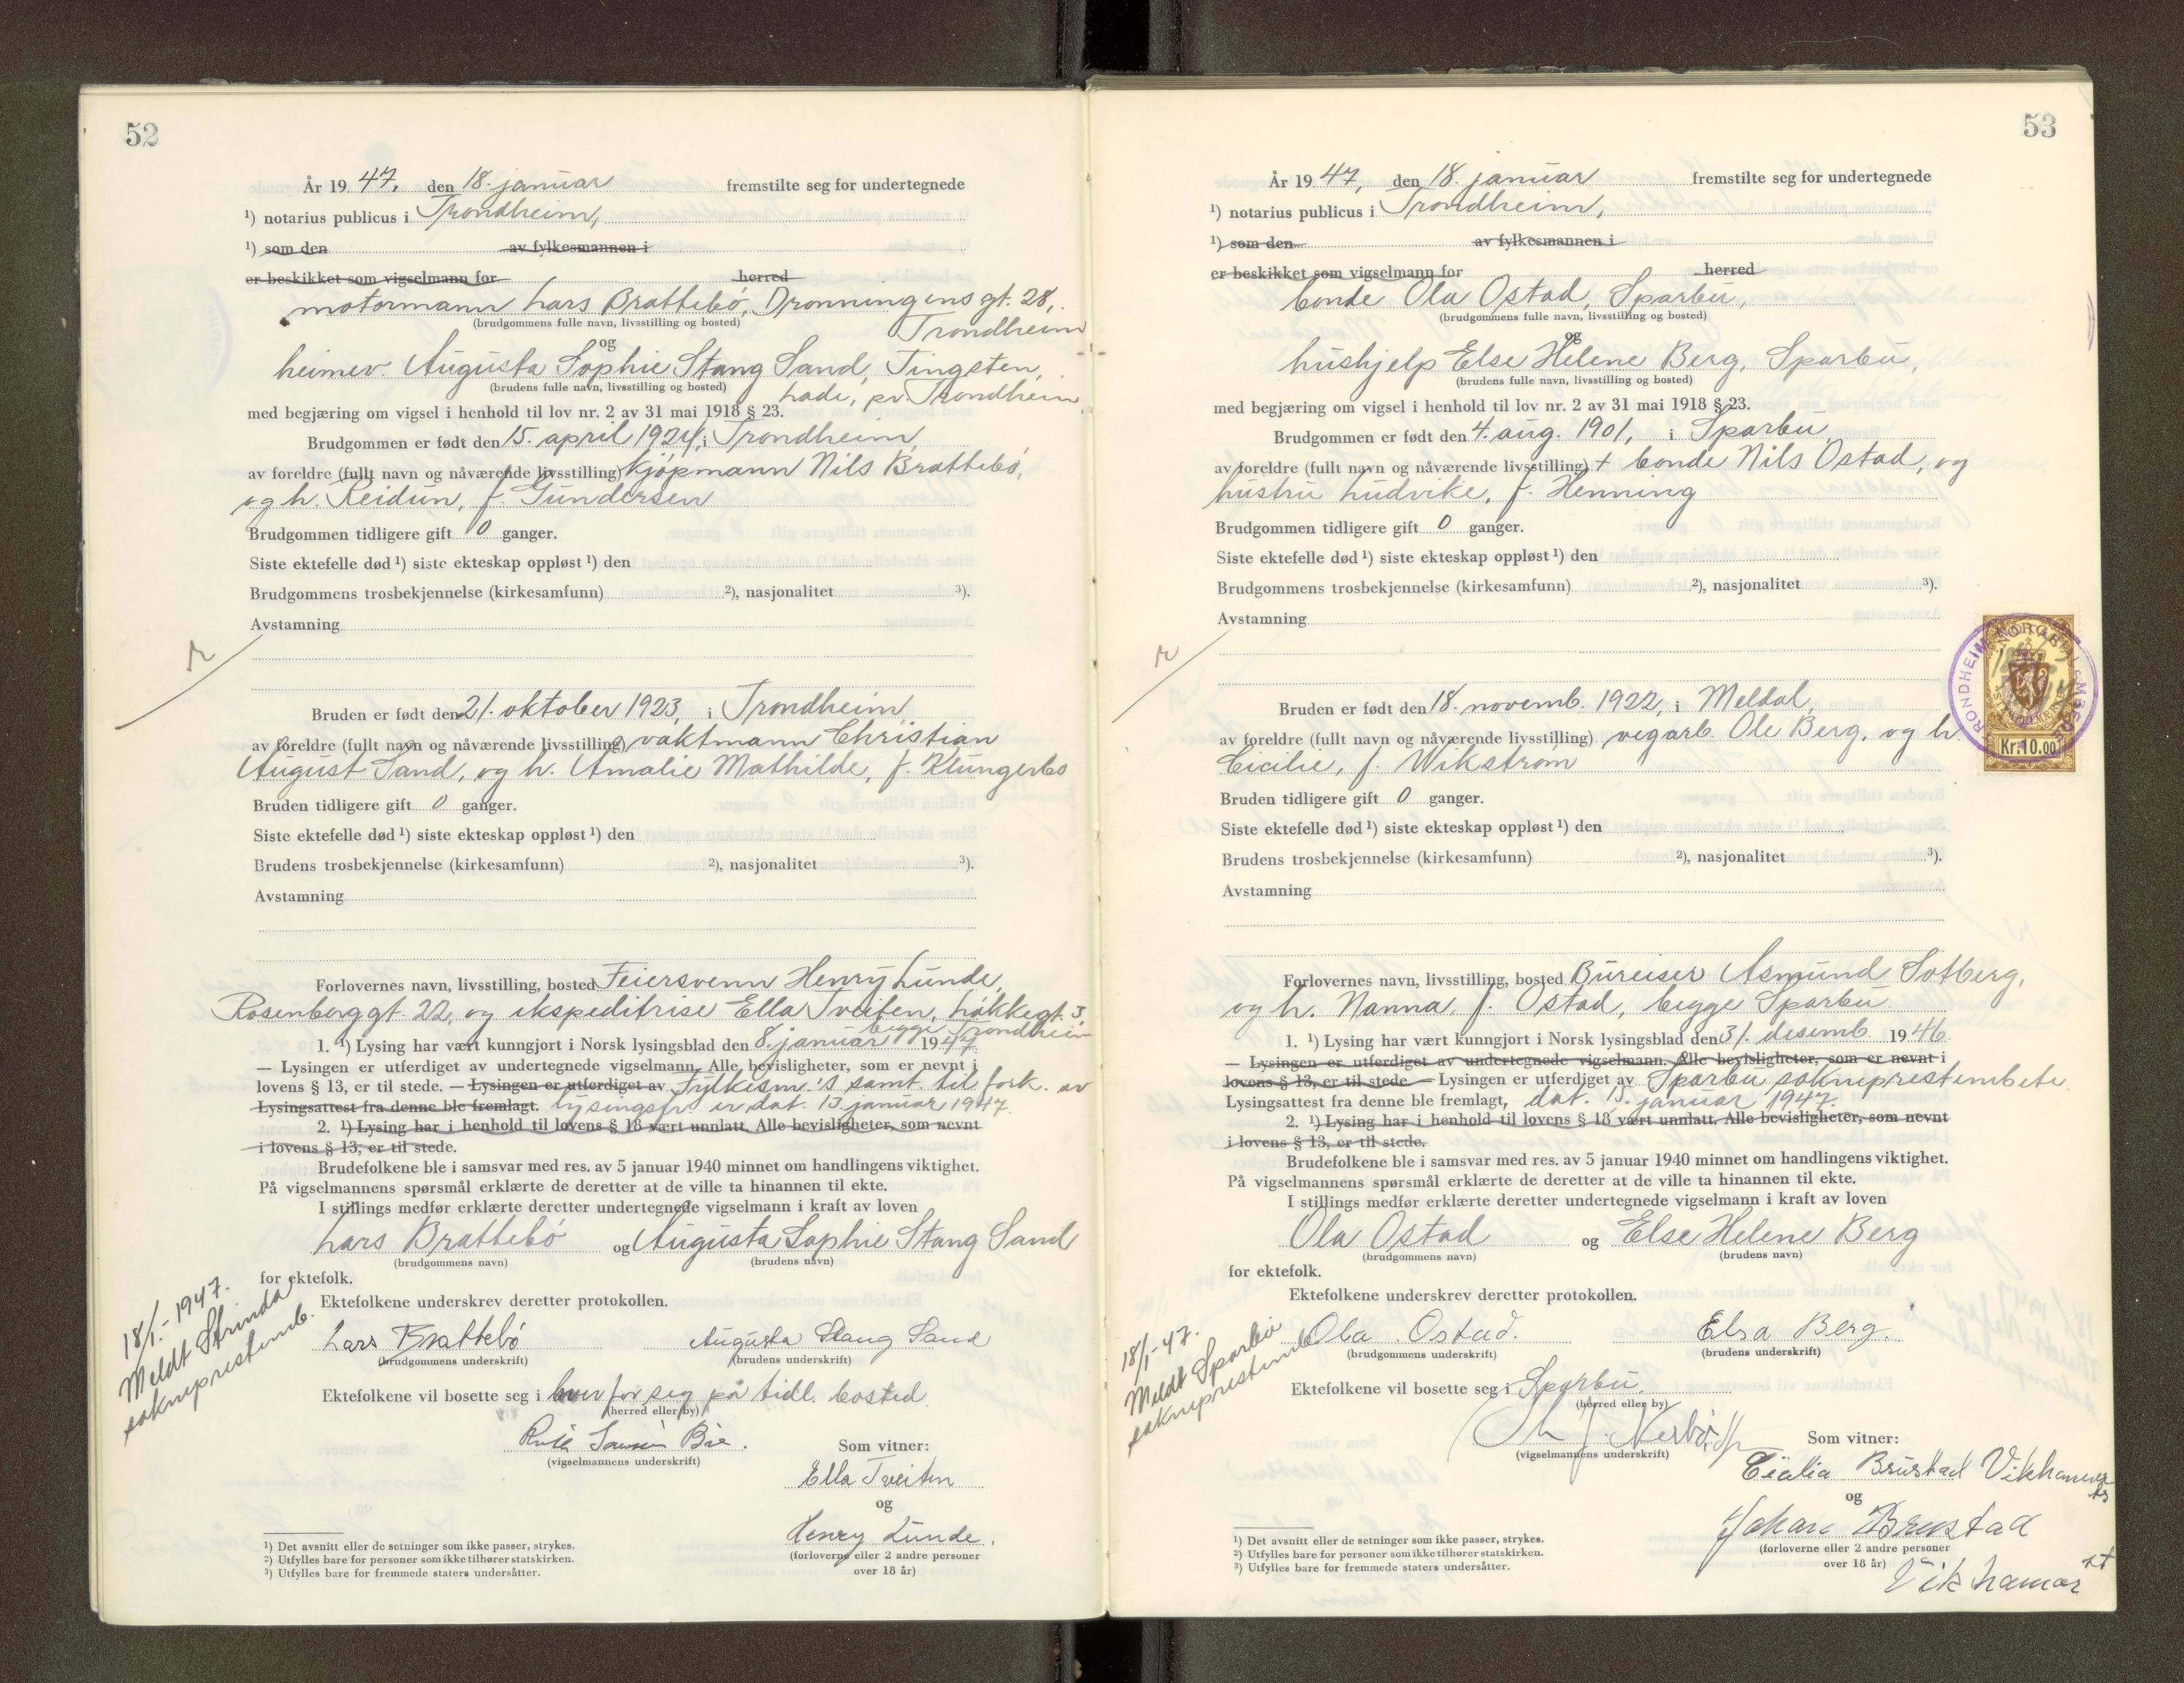 52
År 19 47, den 18. januar fremstilte seg for undertegnede
¹) notarius publicus i Trondheim,
¹) som den av fylkesmannen i
er beskikket som vigselmann for herred
motormann Lars Brattebö, Dronningens gt. 28,
(brudgommens fulle navn, livsstilling og bosted)
Trondheim
og
heimev. Augusta Sophie Stang Sand, Tingsten,
(brudens fulle navn, livsstilling og bosted)
Lade, pr. Trondheim,
med begjæring om vigsel i henhold til lov nr. 2 av 31 mai 1918 § 23.
Brudgommen er født den 15. april 1924, i Trondheim
av foreldre (fullt navn og nåværende livsstilling) kjöpmann Nils Brattebö,
og h. Reidun, f. Gundersen
Brudgommen tidligere gift 0 ganger.
Siste ektefelle død ¹) siste ekteskap oppløst ¹) den
Brudgommens trosbekjennelse (kirkesamfunn) ²), nasjonalitet ³).
Avstamning
Bruden er født den 21. oktober 1923, i Trondheim
av foreldre (fullt navn og nåværende livsstilling) vaktmann Christian
August Sand, og h. Amalie Mathilde, f. Klungerbo
Bruden tidligere gift 0 ganger.
Siste ektefelle død ¹) siste ekteskap oppløst ¹) den
Brudens trosbekjennelse (kirkesamfunn) ²), nasjonalitet ³).
Avstamning
Forlovernes navn, livsstilling, bosted Feiersvenn Henry Lunde,
Rosenborg gt. 22, og ekspeditrise Ella Tveiten, Løkkegt. 3,
begge Trondheim
1. ¹) Lysing har vært kunngjort i Norsk lysingsblad den 8. januar 1947
— Lysingen er utferdiget av undertegnede vigselmann. Alle bevisligheter, som er nevnt i
lovens § 13, er til stede. — Lysingen er utferdiget av Fylkesm.'s samt. til fork. av
Lysingsattest fra denne ble fremlagt. lysingsfr. er dat. 13. januar 1947.
2. ¹) Lysing har i henhold til lovens § 18 vært unnlatt. Alle bevisligheter, som nevnt
i lovens § 13, er til stede.
Brudefolkene ble i samsvar med res. av 5 januar 1940 minnet om handlingens viktighet.
På vigselmannens spørsmål erklærte de deretter at de ville ta hinannen til ekte.
I stillings medfør erklærte deretter undertegnede vigselmann i kraft av loven
Lars Brattebö og Augusta Sophie Stang Sand
(brudgommens navn) (brudens navn)
for ektefolk.
Ektefolkene underskrev deretter protokollen.
18/1.-1947.
Meldt Strinda
sokneprestemb.
Lars Brattebö Augusta Stang Sand
(brudgommens underskrift) (brudens underskrift)
Ektefolkene vil bosette seg i hver for seg på tidl. bosted
(herred eller by)
(vigselmannens underskrift)
Som vitner:
Ella Tveiten
og
Henry Lunde.
(forloverne eller 2 andre personer
over 18 år)
¹) Det avsnitt eller de setninger som ikke passer, strykes.
²) Utfylles bare for personer som ikke tilhører statskirken.
³) Utfylles bare for fremmede staters undersåtter.
53
År 19 47, den 18. januar fremstilte seg for undertegnede
¹) notarius publicus i Trondheim,
¹) som den av fylkesmannen i
er beskikket som vigselmann for herred
bonde Ola Ostad, Sparbu,
(brudgommens fulle navn, livsstilling og bosted)
og
hushjelp Else Helene Berg, Sparbu,
(brudens fulle navn, livsstilling og bosted)
med begjæring om vigsel i henhold til lov nr. 2 av 31 mai 1918 § 23.
Brudgommen er født den 4. aug. 1901, i Sparbu
av foreldre (fullt navn og nåværende livsstilling) + bonde Nils Ostad, og
hustru Ludvike, f. Henning
Brudgommen tidligere gift 0 ganger.
Siste ektefelle død ¹) siste ekteskap oppløst ¹) den
Brudgommens trosbekjennelse (kirkesamfunn) ²), nasjonalitet ³).
Avstamning
Kr. 10.00
Bruden er født den 18. novemb. 1922, i Meldal,
av foreldre (fullt navn og nåværende livsstilling) vegarb. Ole Berg, og h.
Cicilie, f. Wikström
Bruden tidligere gift 0 ganger.
Siste ektefelle død ¹) siste ekteskap oppløst ¹) den
Brudens trosbekjennelse (kirkesamfunn) ²), nasjonalitet ³).
Avstamning
Forlovernes navn, livsstilling, bosted Bureiser Asmund Sotberg,
og h. Nanna, f. Ostad, begge Sparbu
1. ¹) Lysing har vært kunngjort i Norsk lysingsblad den 31. desemb. 1946
— Lysingen er utferdiget av undertegnede vigselmann. Alle bevisligheter, som er nevnt i
lovens § 13, er til stede. — Lysingen er utferdiget av Sparbu sokneprestembete
Lysingsattest fra denne ble fremlagt, dat. 15. januar 1947.
2. ¹) Lysing har i henhold til lovens § 18 vært unnlatt. Alle bevisligheter, som nevnt
i lovens § 13, er til stede.
Brudefolkene ble i samsvar med res. av 5 januar 1940 minnet om handlingens viktighet.
På vigselmannens spørsmål erklærte de deretter at de ville ta hinannen til ekte.
I stillings medfør erklærte deretter undertegnede vigselmann i kraft av loven
Ola Ostad og Else Helene Berg
(brudgommens navn) (brudens navn)
for ektefolk.
Ektefolkene underskrev deretter protokollen.
18/1-47.
Meldt Sparbu
sokneprestemb
Ola Ostad. Elsa Berg.
(brudgommens underskrift) (brudens underskrift)
Ektefolkene vil bosette seg i Sparbu.
(herred eller by)
(vigselmannens underskrift)
Som vitner:
Brustad
og
Johan Brustad
(forloverne eller 2 andre personer
over 18 år)
Vikhamar
¹) Det avsnitt eller de setninger som ikke passer, strykes.
²) Utfylles bare for personer som ikke tilhører statskirken.
³) Utfylles bare for fremmede staters undersåtter.